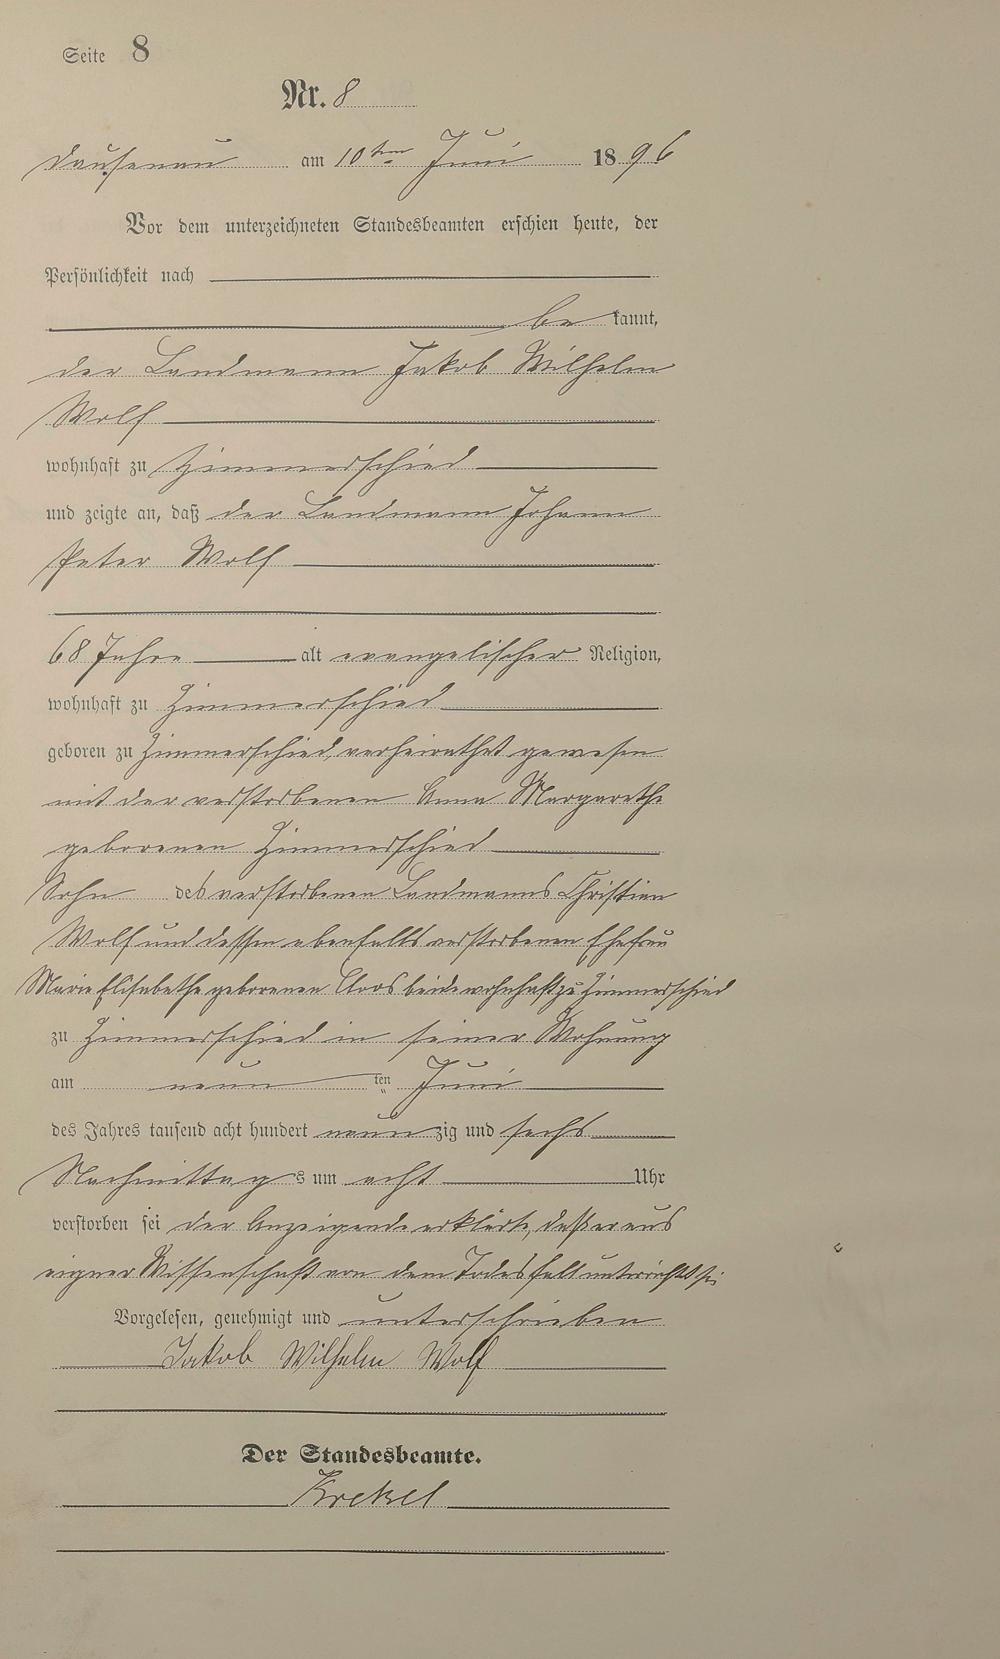 Seite 8
Nr. 8
Dausenau am 10ten Juni 1896
Vor dem unterzeichneten Standesbeamten erschien heute, der
Persönlichkeit nach
be kannt,
der Landmann Jakob Wilhelm
Wolf
wohnhaft zu Zimmerschied
und zeigte an, daß der Landmann Johann
Peter Wolf
68 Jahre alt evangelischer Religion,
wohnhaft zu Zimmerschied
geboren zu Zimmerschied, verheirathet gewesen
mit der verstorbenen Anna Margarethe
geborenen Zimmerschied
Sohn des verstorbenen Landmanns Christian
Wolf und dessen ebenfalls verstorbenen Ehefrau
Marie Elisabethe geborenen Cloos beide wohnhaft zu Zimmerschied
zu Zimmerschied in seiner Wohnung
am neun ten Juni
des Jahres tausend acht hundert neun zig und sechs
Nachmittag s um acht Uhr
verstorben sei der Anzeigende erklärte, daß er aus
eigner Wissenschaft von dem Todesfall unterrichtet sei
Vorgelesen, genehmigt und unterschrieben
Jakob Wilhelm Wolf
Der Standesbeamte.
Krekel